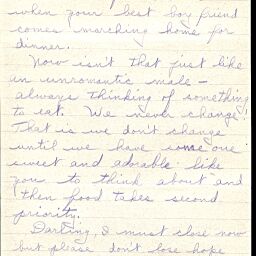 when your best boy friend
comes marching home for
dinner.
Now isn't that just like
an unromantic male -
always thinking of something
to eat. We never change!
That is we don't change
until we have someone
sweet and adorable like
you to think about and
then food takes second
priority.
Darling, I must close now
but please don't lose hope